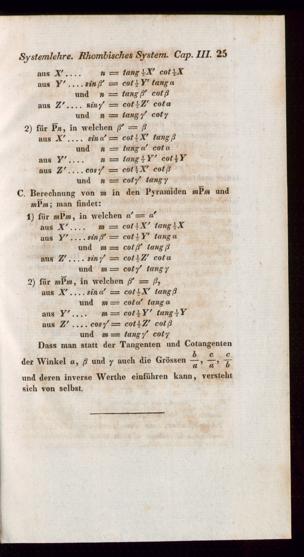 Systemlehre. Rhombisches System. Cap. III. 25
aus X'.... n = tang ½X' cot ½X
aus Y'.... sin β' = cot ½ Y' tang α
und n = tang β' cot β
aus Z'.... sin γ' = cot ½ Z' cot α
und n = tang γ' cot γ
2) für P̆n, in welchen β' = β
aus X'.... sin α' = cot ½ X' tang β
und n = tang α' cot α
aus Y'.... n = tang ½ Y' cot ½ Y
aus Z'.... cos γ' = cot ½ X' cot β
und n = cot γ' tang γ
C. Berechnung von m in den Pyramiden mP̄m und
mP̆m; man findet:
1) für mP̄m, in welchen α' = α
aus X'.... m = cot ½ X' tang ½ X
aus Y'.... sin β' = cot ½ Y' tang α
und m = cot β' tang β
aus Z'.... sin γ' = cot ½ Z' cot α
und m = cot γ' tang γ
2) für mP̆m, in welchen β' = β,
aus X'.... sin α' = cot ½ X' tang β
und m = cot α' tang α
aus Y'.... m = cot ½ Y' tang ½ Y
aus Z'.... cos γ' = cot ½ Z' cot β
und m = tang γ' cot γ
Dass man statt der Tangenten und Cotangenten
der Winkel α, β und γ auch die Grössen b/a, c/a, c/b
und deren inverse Werthe einführen kann, versteht
sich von selbst.